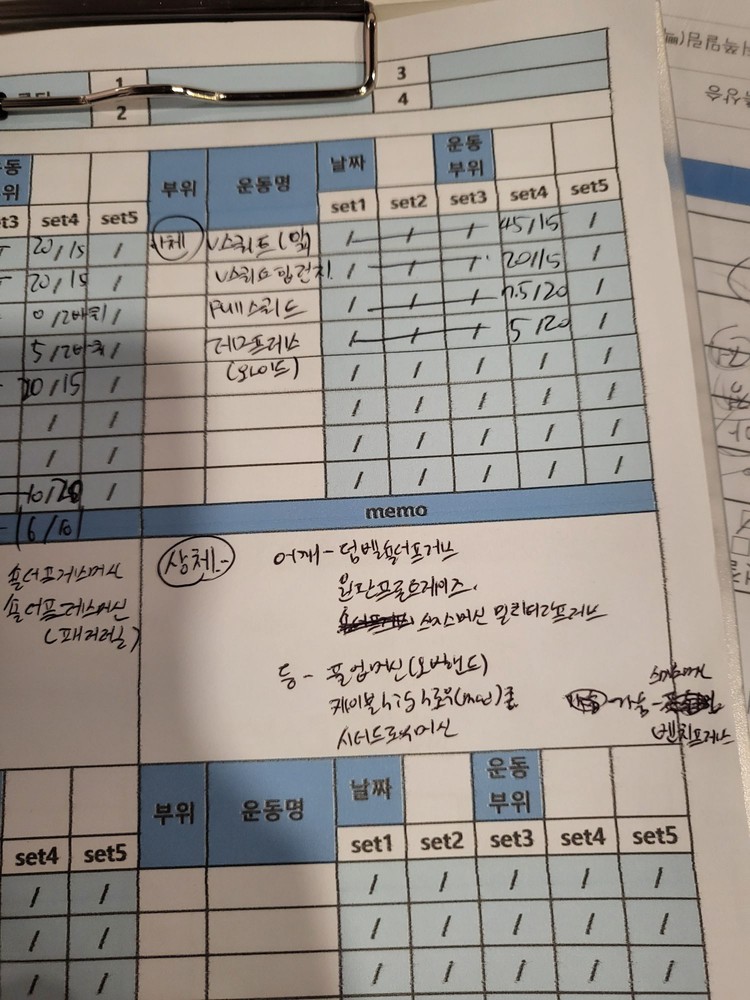 1
3
2
4
부위
운동명
날짜
운동
부위
set4
set5
set1
set2
set3
set4
set5
20/15 /
V스쿼트(와이드) / / / 45/15 /
20/15 /
V스쿼트 힙런지 / / / 20/15 /
0/2바퀴 /
Pull스쿼드 / / / 7.5/20 /
5/2바퀴 /
레그프레스 / / / 5/20 /
20/15 /
(와이드) / / / / /
/ /
/ / / / /
/ /
/ / / / /
10/20 /
/ / / / /
6/10
memo
숄더프레스머신
숄더프레스머신
(패러럴)
상체-
어깨-덤벨숄더프레스
원판프론트레이즈
스미스머신 밀리터리프레스
등-풀업머신(오버핸드)
케이블
시티드로우머신
가슴-
스미스머신
벤치프레스
부위
운동명
날짜
운동
부위
set4
set5
set1
set2
set3
set4
set5
/ /
/ / / / /
/ /
/ / / / /
/ /
/ / / / /